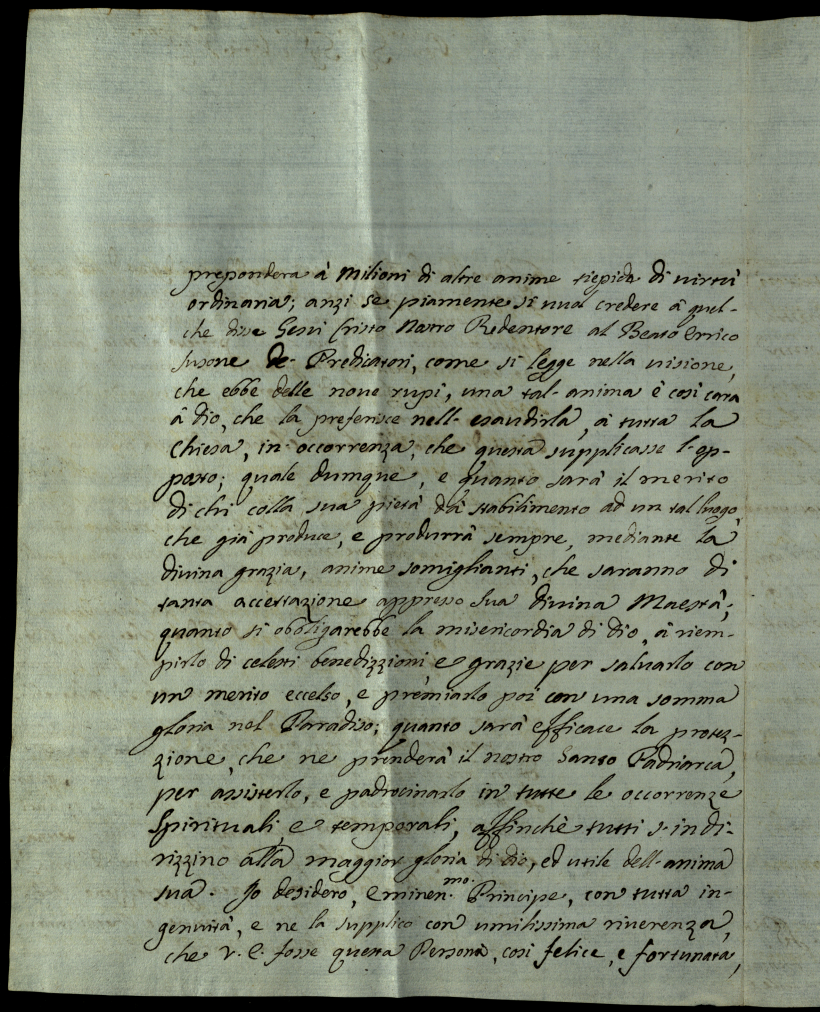 prepondera à Milioni di altre anime tiepide di virtù
ordinaria; anzi se piamente si vuol credere à quel-
che disse Gesù Cristo Nostro Redentore al Beato Errico
Susone de- Predicatori, come si legge nella visione,
che ebbe delle nove rupi, una tal- anima è così cara
à dio, che la preferisce nell- esaudirla, à tutta la
Chiesa, in- occorrenza, che questa supplicasse l- op-
posto; quale dumque, e quanto sarà il merito
di chi colla sua pietà dà stabilimento ad un tal luogo,
che già produce, e produrrà sempre, mediante la
divina grazia, anime somiglianti, che saranno di
tanta accettazione appresso sua divina Maestà;
quanto si obbligarebbe la misericordia di dio, à riem-
pirlo di celesti benedizzioni e grazie per salvarlo con
un merito eccelso, e premiarlo poi con una somma
gloria nel Paradiso; quanto sarà efficace la protez-
zione, che ne prenderà il nostro Santo Padriarca,
per assisterlo, e padrocinarlo in tutte le occorrenze
Spirituali e temporali, affinchè tutti s- indi-
rizzino alla maggior gloria di dio, ed utile dell- anima
sua. Io desidero, Eminen.mo Principe, con tutta in-
genuità, e ne la supplico con umilissima riverenza,
che V. E. fosse questa Persona, così felice, e fortunata,